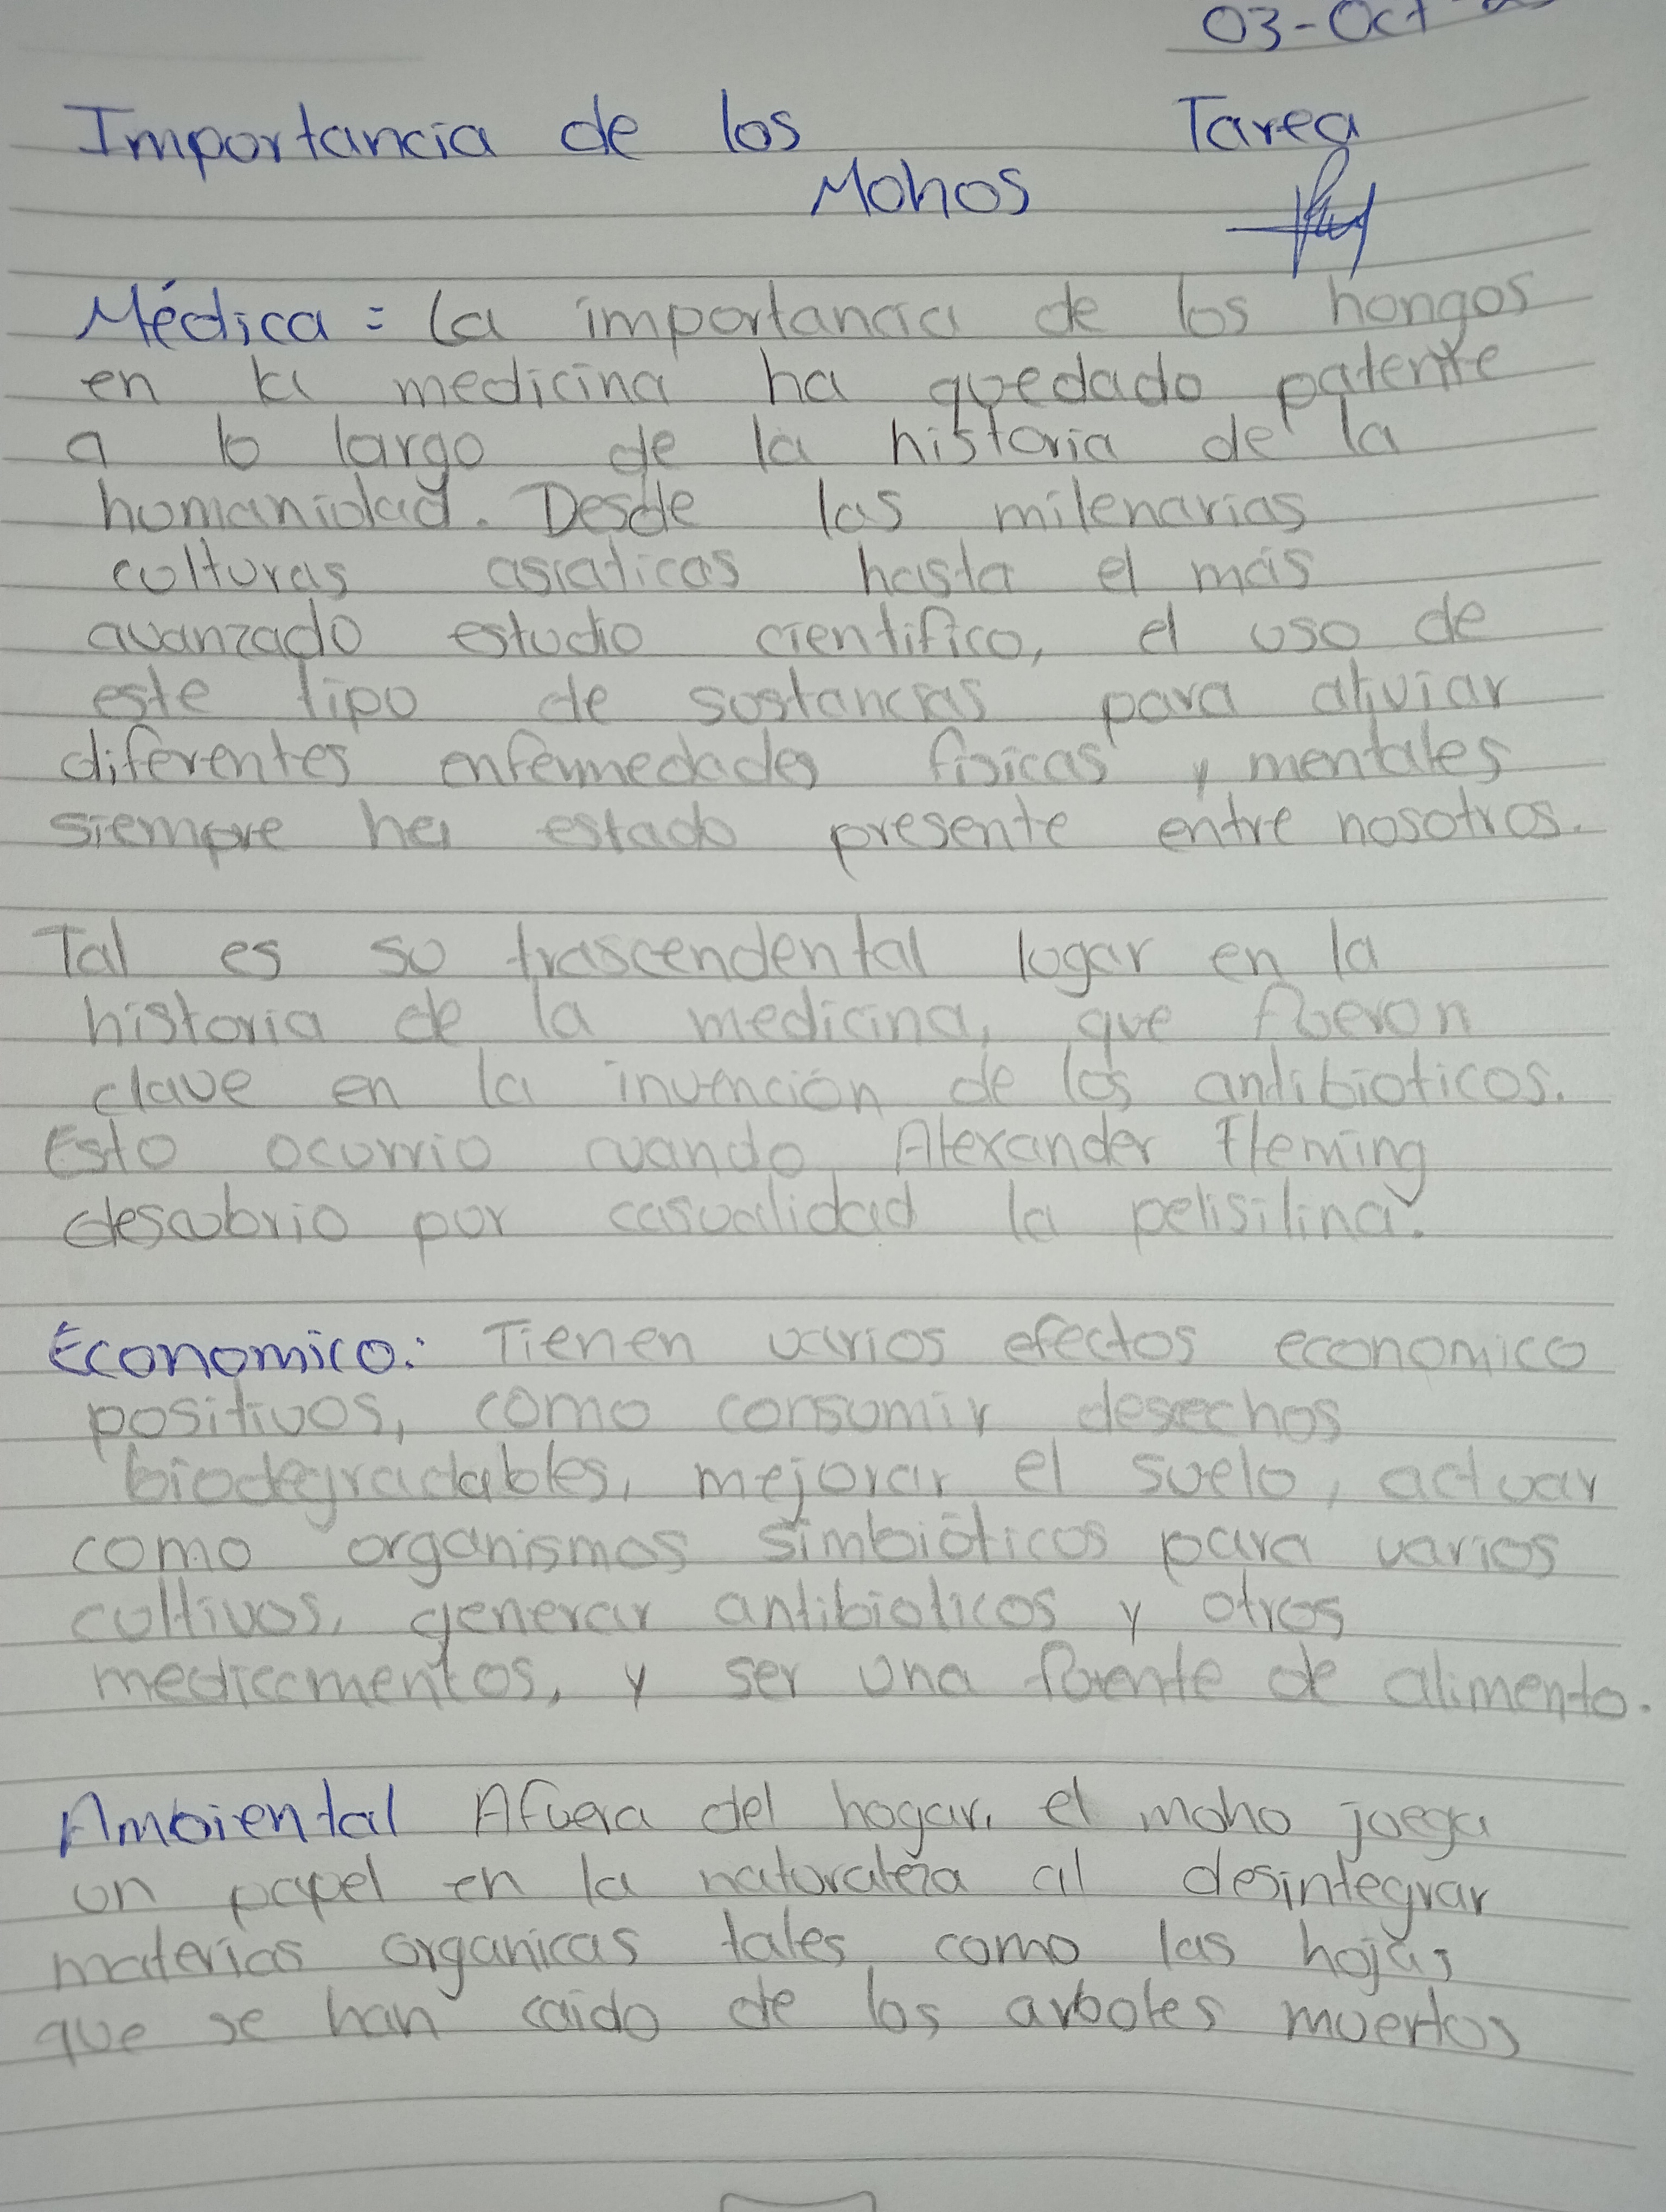 03-Oct
Importancia de los Tarea
Mohos
Médica: La importancia de los hongos
en la medicina ha quedado patente
a lo largo de la historia de la
humanidad. Desde las milenarias
culturas asiaticas hasta el más
avanzado estudio cientifico, el uso de
este tipo de sustancias para aliviar
diferentes enfermedades fisicas y mentales
siempre ha estado presente entre nosotros.
Tal es su trascendental lugar en la
historia de la medicina, que fueron
clave en la invención de los antibioticos.
Esto ocurrio cuando Alexander Fleming
descubrio por casualidad la pelisilina.
Economico: Tienen varios efectos economico
positivos, como consumir desechos
biodegradables, mejorar el suelo, actuar
como organismos simbióticos para varios
cultivos, generar antibioticos y otros
medicamentos, y ser una fuente de alimento.
Ambiental Afuera del hogar, el moho juega
un papel en la naturaleza al desintegrar
materias organicas tales como las hojas
que se han caido de los arboles muertos